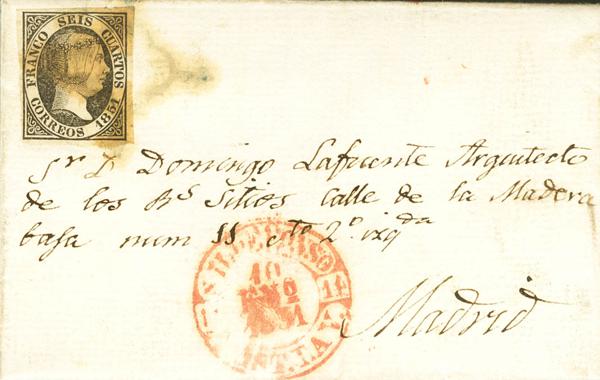 FRANCO SEIS CUARTOS
CORREOS 1851
Sr D Domingo Lafuente Arquitecto
de los Rs Sitios Calle de la Madera
baja num 11 cto 2º izqda
Madrid
S. ILDEFONSO
10
1851